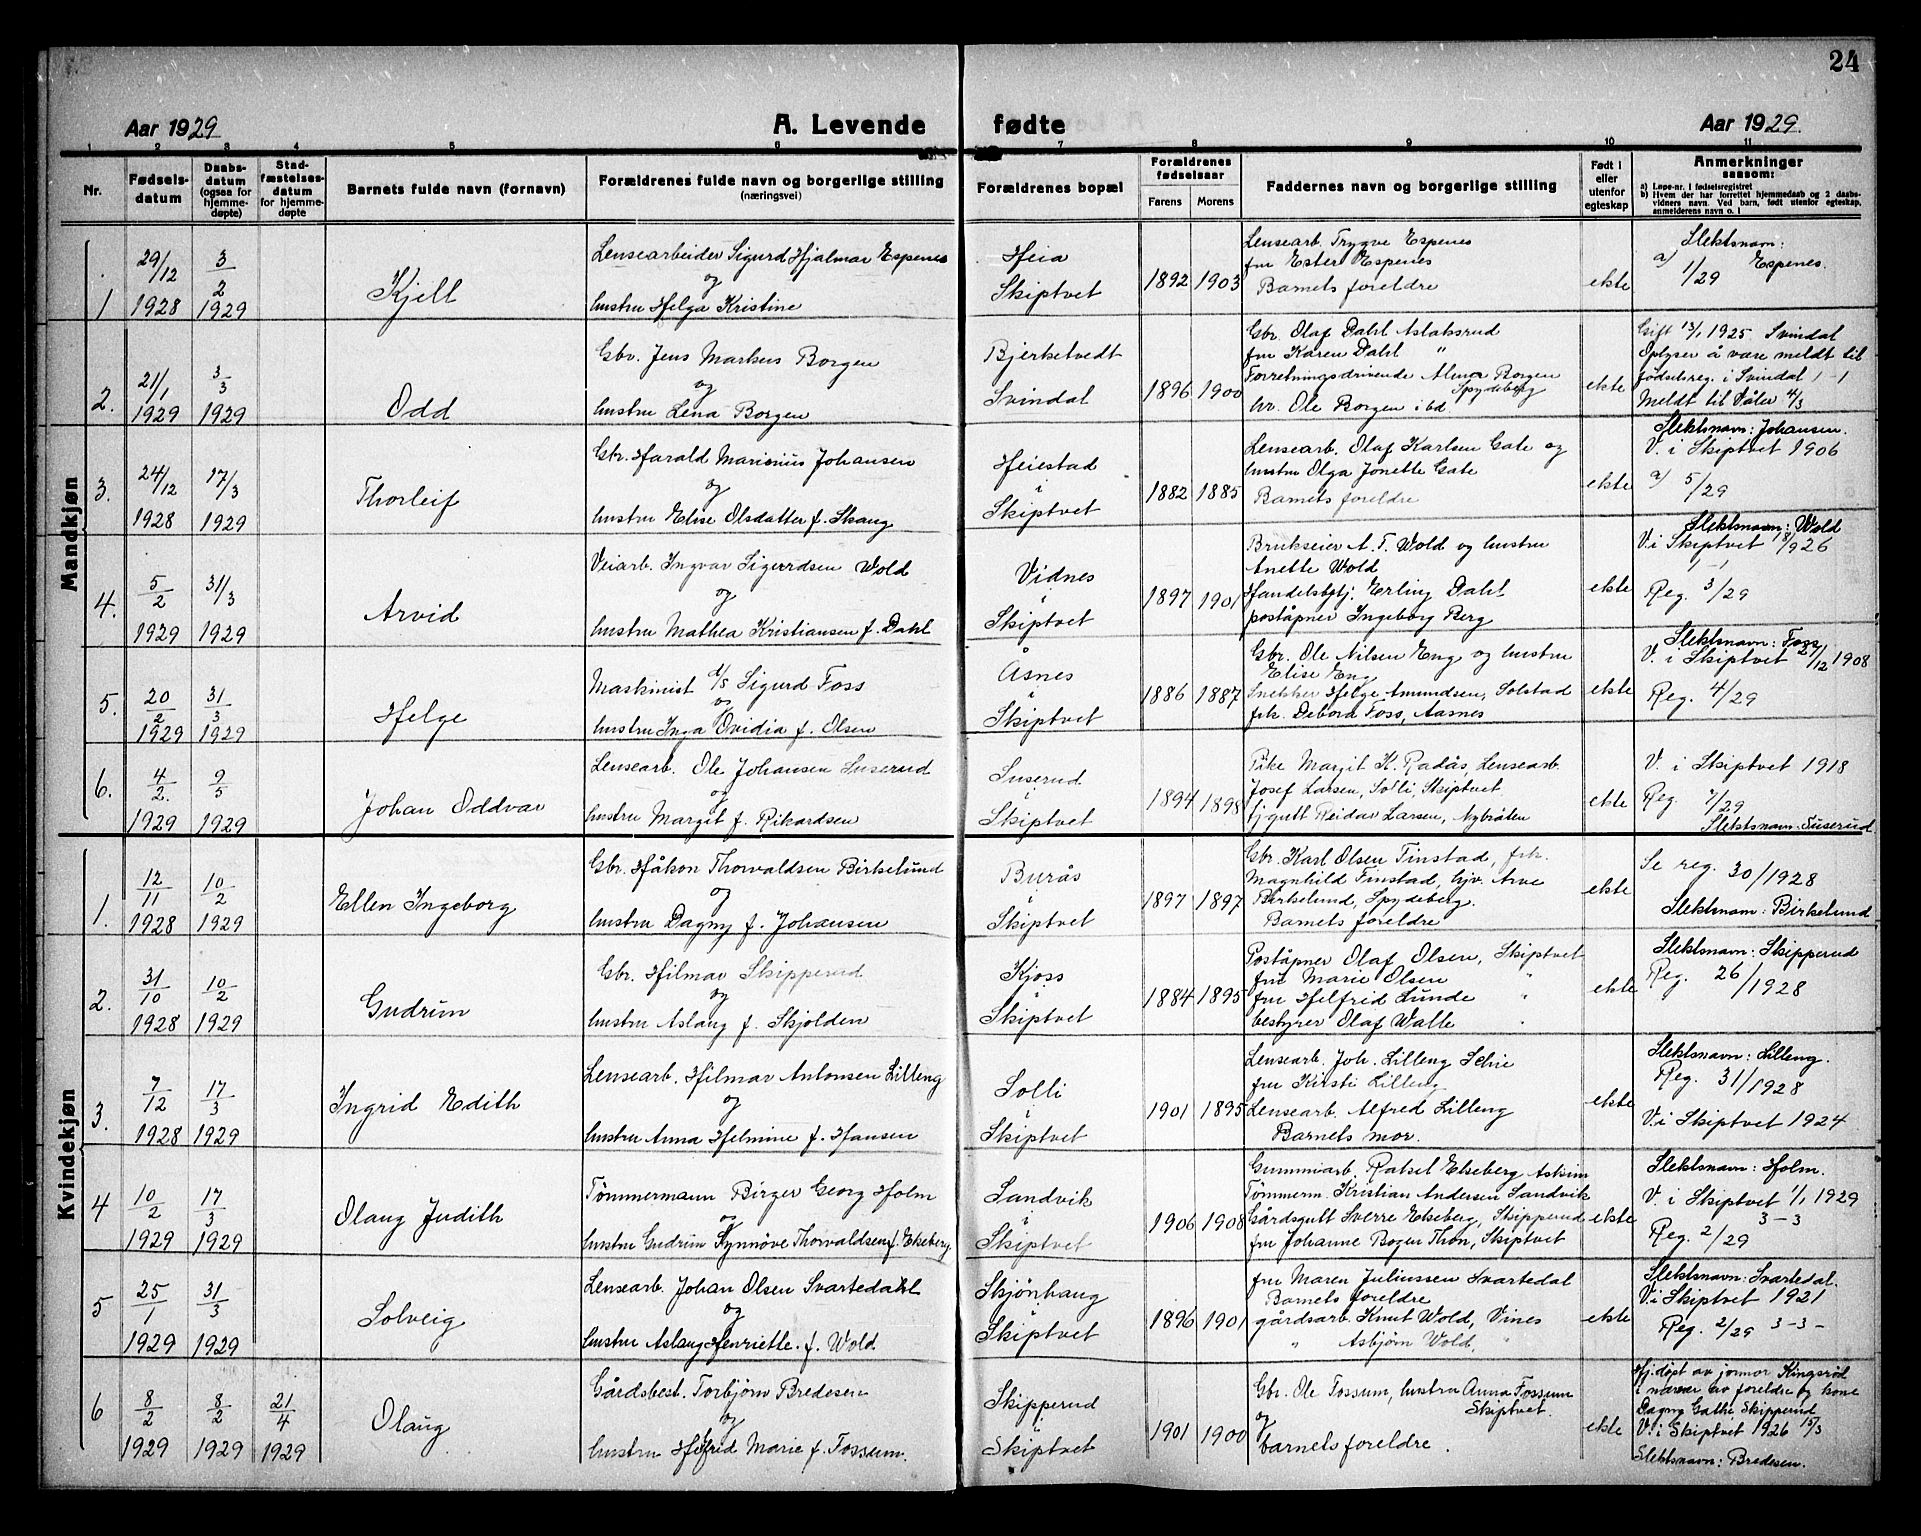 24
Aar 1929
A. Levende
fødte
Aar 1929.
1 2 3 4 5 6 7 8 9 10 11
Nr.
Fødsels-
datum
Daabs-
datum
(ogsaa for
hjemme-
døpte)
Stad-
fæstelses-
datum
for hjemme-
døpte
Barnets fulde navn (fornavn)
Forældrenes fulde navn og borgerlige stilling
(næringsvei)
Forældrenes bopæl
Forældrenes
fødselsaar
Farens Morens
Faddernes navn og borgerlige stilling
Født i
eller
utenfor
egteskap
Anmerkninger
saasom:
a) Løpe-nr. i fødselsregistret
b) Hvem der har forrettet hjemmedaab og 2 daabs-
vidners navn. Ved barn, født utenfor egteskap,
anmelderens navn o. l
Mandkjøn
1
29/12
1928
3/2
1929
Kjell
Lensearbeider Sigurd Hjalmar Espenes
og
hustru Helga Kristine
Heia
Skiptvet
1892 1903
Lensearb. Trygve Espenes
fru Ester Espenes
Barnets foreldre
ekte
Slektsnavn:
a) Espenes.
1/29
2.
21/1
1929
3/3
1929
Odd
Gbr. Jens Markus Borgen
og
hustru Lena Borgen
Bjerketvedt
Svindal
1896 1900
Gbr. Olaf Dahl Aslaksrud
fru Karen Dahl "
Forretningsdrivende Alma Borgen
Spydeberg
hr. Ole Borgen ibd
ekte
Gift 13/1 1925 Svindal
Oplyser å være meldt til
fødselsreg. i Svindal 1-1
Meldt til Våler 4/3
3.
24/12
1928
17/3
1929
Thorleif
Gbr. Harald Marinius Johansen
og
hustru Elise Olsdatter f. Skaug
Heiestad
i
Skiptvet
1882 1885
Lensearb. Olaf Karlsen Gate og
hustru Olga Jonette Gate
Barnets foreldre
ekte
Slektsnavn: Johansen.
V. i Skiptvet 1906
a) 5/29
4.
5/2
1929
31/3
1929
Arvid
Veiarb. Ingvar Sigurdsen Wold
og
hustru Mathea Kristiansen f. Dahl
Vidnes
i
Skiptvet
1897 1901
Brukseier A. T. Wold og hustru
Anette Wold
Handelsbetj. Erling Dahl
poståpner Ingeborg Berg
ekte
Slektsnavn: Wold
V. i Skiptvet 18/1 1926
Reg. 3/29
5.
20/2
1929
31/3
1929
Helge
Maskinist d/s Sigurd Foss
og
hustru Inga Ovidia f. Olsen
Åsnes
i
Skiptvet
1886 1887
Gbr. Ole Nilsen Eng og hustru
Elise Eng
Snekker Helge Amundsen, Solstad
frk. Debora Foss, Aasnes
ekte
Slektsnavn: Foss
V. i Skiptvet 27/12 1908
Reg. 4/29
6.
4/2.
1929
9/5
1929
Johan Oddvar
Lensearb. Ole Johansen Suserud
og
hustru Margit f. Rikardsen
Suserud
i
Skiptvet
1894 1898
Pike Margit K. Radås, Lensearb.
Josef Larsen, Solli, Skiptvet
tjgutt Reidar Larsen, Nybråten
ekte
V. i Skiptvet 1918
Reg. 7/29
Slektsnavn: Suserud
Kvindekjøn
1.
12/11
1928
10/2
1929
Ellen Ingeborg
Gbr. Håkon Thorvaldsen Birkelund
og
hustru Dagny f. Johansen
Burås
i
Skiptvet
1897 1897
Gbr. Karl Olsen Finstad, frk.
Magnhild Finstad, Gjv. Arve
Birkelund, Spydeberg.
Barnets foreldre
ekte
Se reg. 30/1928
Slektsnavn: Birkelund
2.
31/10
1928
10/2
1929
Gudrun
Gbr. Hilmar Skipperud
og
hustru Aslaug f. Skjolden
Kjoss
i
Skiptvet
1884 1895
Poståpner Olaf Olsen, Skiptvet
fru Marie Olsen
fru Helfrid Lunde "
bestyrer Olaf Walle "
ekte
Slektsnavn: Skipperud
Reg. 26/1928
3.
7/12
1928
17/3
1929
Ingrid Edith
Lensearb. Hilmar Antonsen Lilleng
og
hustru Anna Helmine f. Hansen
Solli
i
Skiptvet
1901 1895
Lensearb. Joh. Lilleng
fru Kirsti Lilleng
Lensearb. Alfred Lilleng
Barnets mor.
ekte
Slektsnavn: Lilleng.
Reg. 31/1928
V. i Skiptvet 1924
4
10/2
1929
17/3
1929
Olaug Judith
Tömmermann Birger Georg Holm
og
hustru Gudrun Synnöve Thorvaldsen f. Ekeberg
Sandvik
i
Skiptvet
1906 1908
Gummiarb. Ekeberg Askim
Tömmerm. Kristian Andersen Sandvik
Gårdsgutt Sverre Ekeberg, Skipperud
fru Johanne Boger Thon, Skiptvet
ekte
Slektsnavn: Holm.
V. i Skiptvet 1/1 1929
3-3
Reg. 2/29
5
25/1
1929
31/3
1929
Solveig
Lensearb. Johan Olsen Svartedahl
og
hustru Aslaug Henriette. f. Wold
Skjönhaug
i
Skiptvet
1896 1901
fru Maren Juliussen Svartedal
Barnets foreldre
gårdsarb. Knut Wold, Vines
" Asbjørn Wold, "
ekte
Slektsnavn: Svartedal.
V. i Skiptvet 1921
Reg. 2/29 3-3-
6
8/2
1929
8/2
1929
21/4
1929
Olaug
Gårdsbest. Torbjörn Bredesen
og
hustru Hilfrid Marie f. Fossum.
Skipperud
i
Skiptvet
1901 1900
Gbr. Ole Fossum, hustru Anna Fossum
Skiptvet.
og
barnets foreldre.
ekte
Hj. döpt av jormor Kingsröd
i nærvær av foreldre og kone
Dagny Gathe Skipperud
V. i Skiptvet 1926 15/3
Slektsnavn: Bredesen.